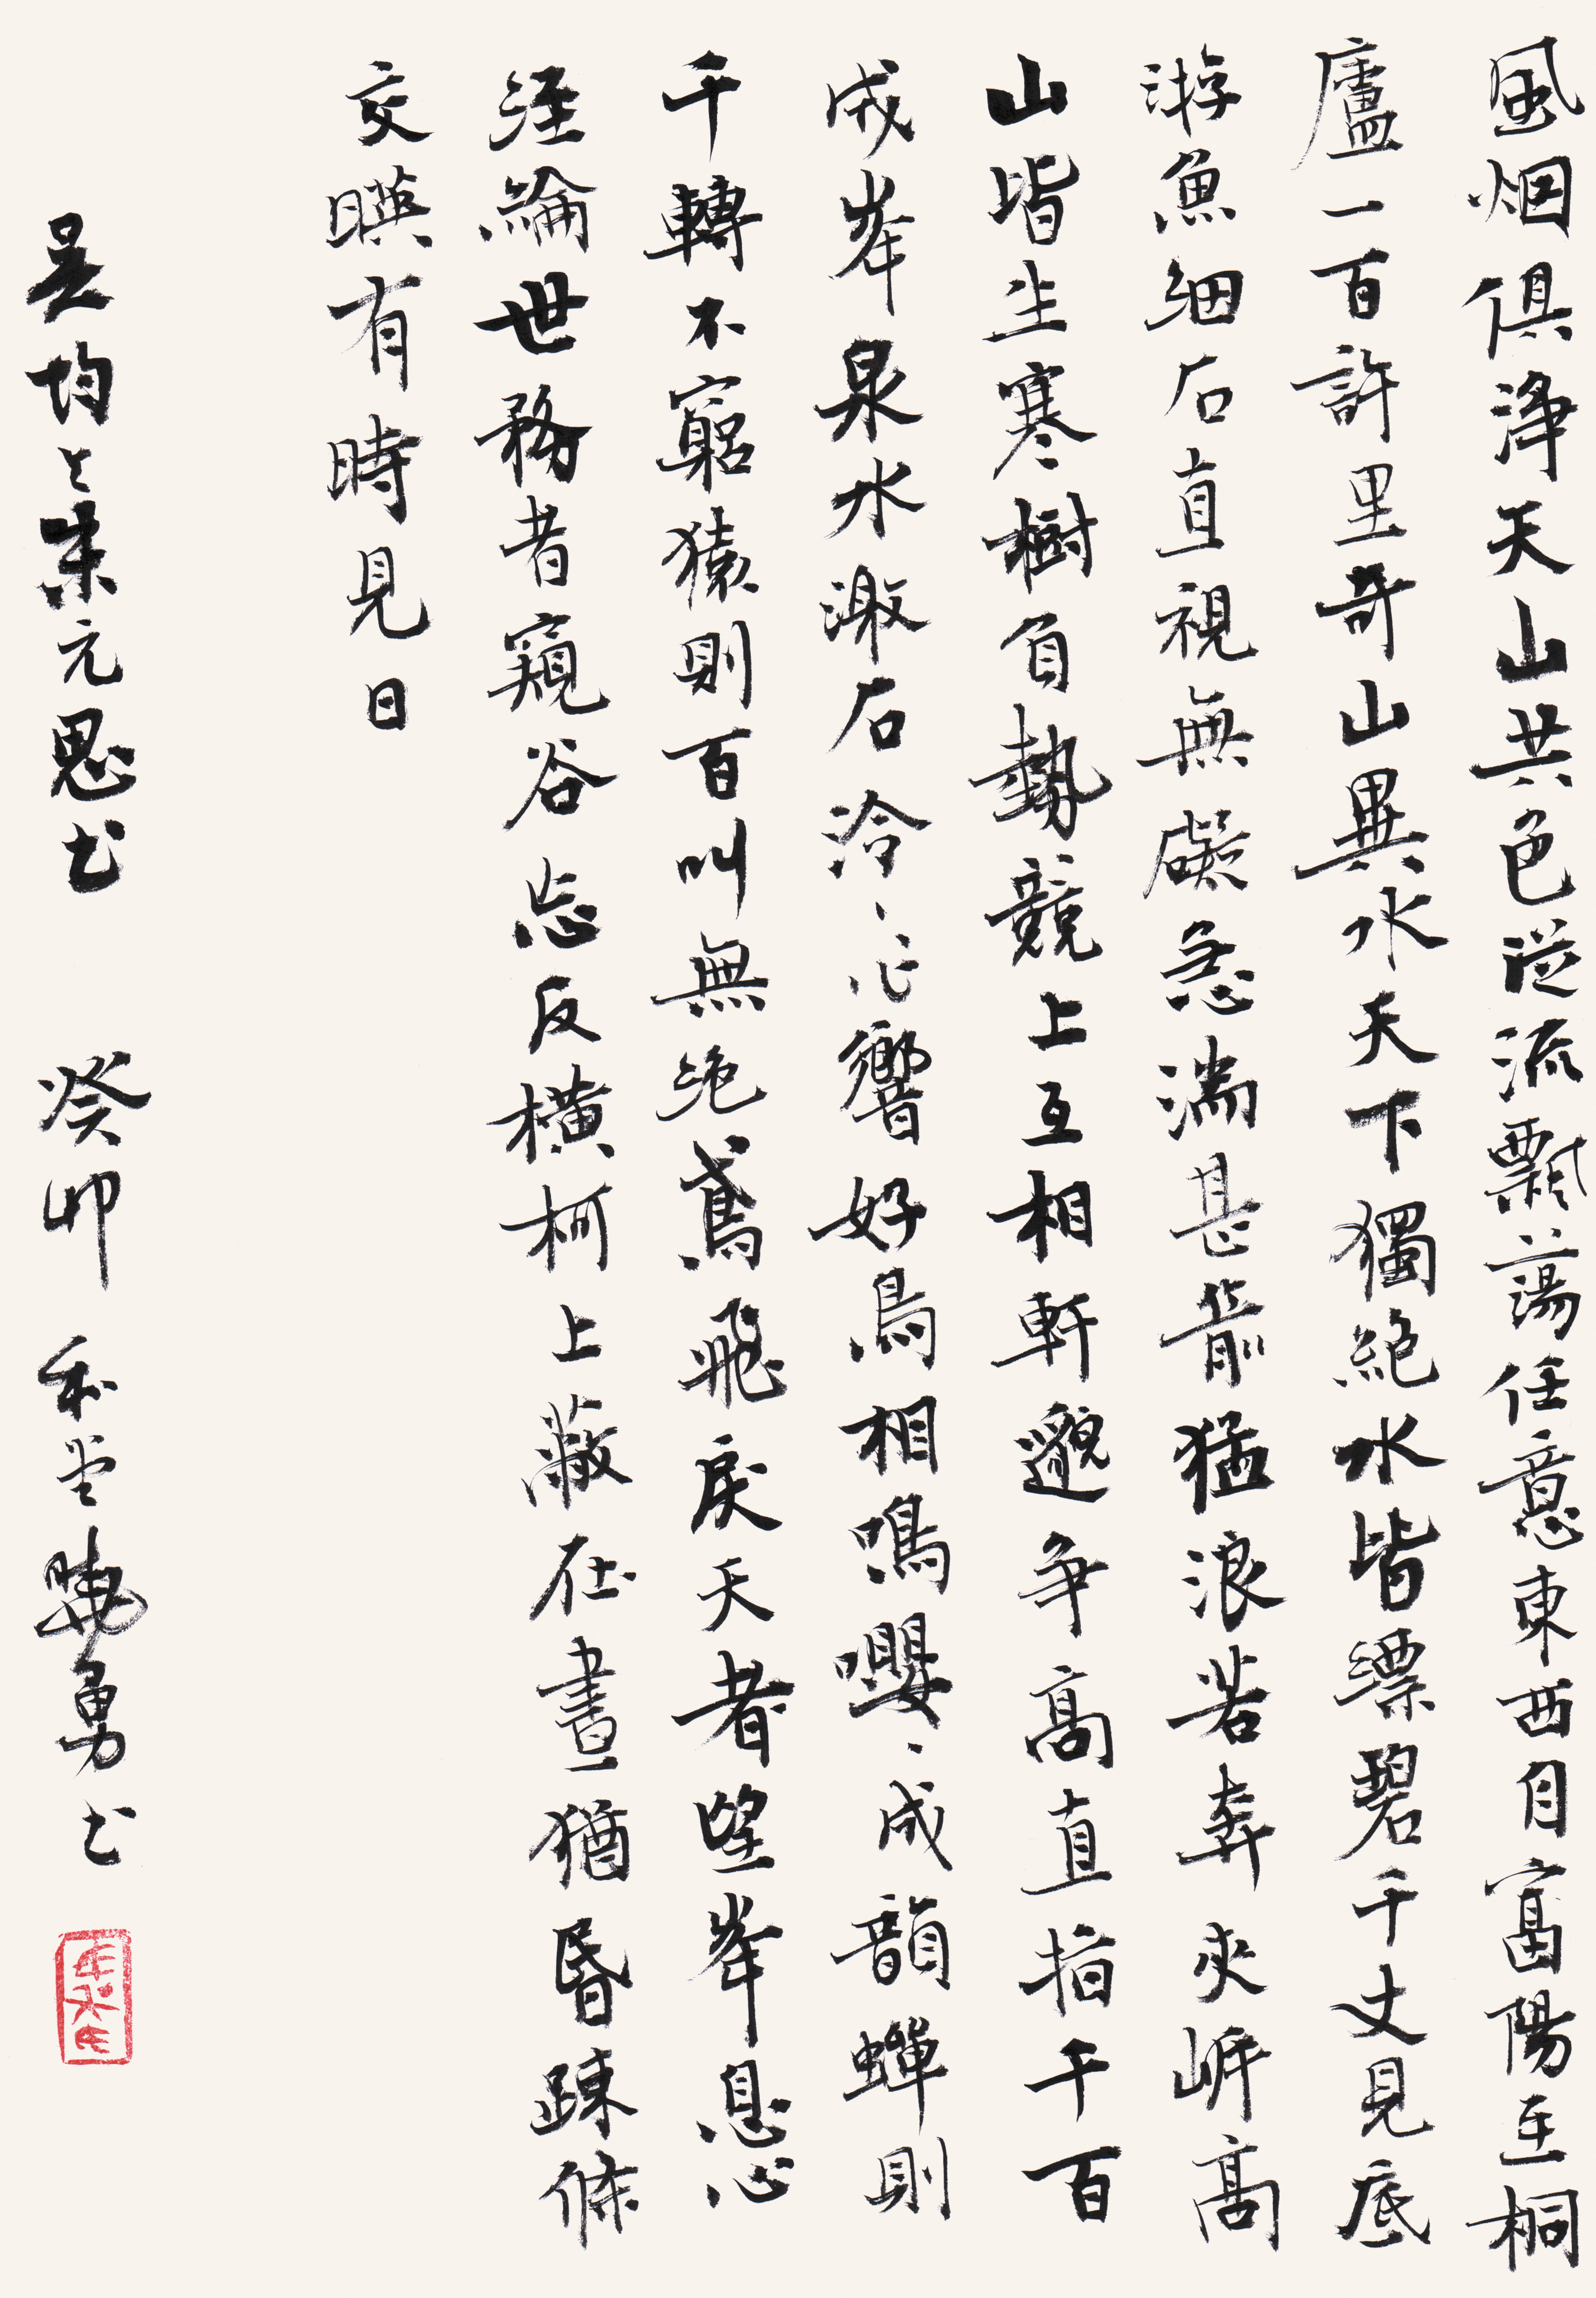 風烟俱淨天山共色從流飄蕩任意東西自富陽至桐
廬一百許里奇山異水天下獨絶水皆漂碧千丈見底
游魚細石直視無礙急湍甚箭猛浪若奔夾岸高
山皆生寒樹負勢競上互相軒邈争高直指千百
成峯泉水激石泠、作響好鳥相鳴嚶、成韻蟬則
千轉不窮猿則百叫無絶鳶飛戾天者望峯息心
經綸世務者窺谷忘反横柯上蔽在晝猶昏疎條
交暎有時見日
吴均与朱元思书 癸卯 和堂曉勇书